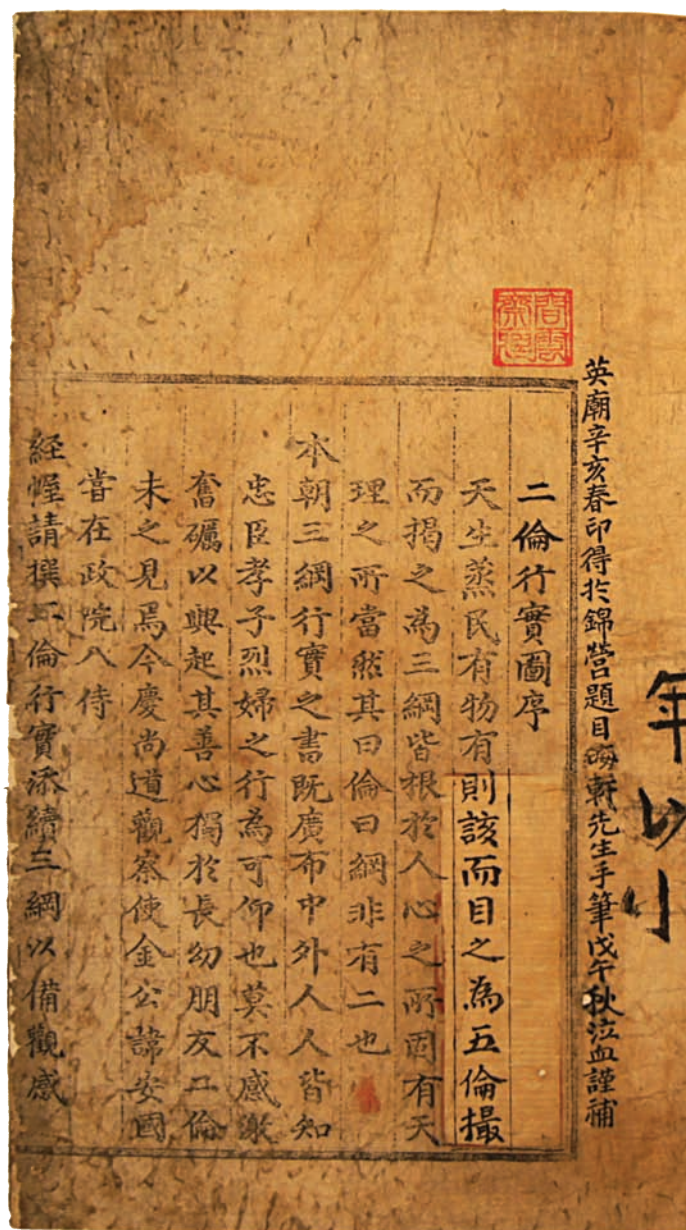 年以小
英廟辛亥春印得於錦營題目晦軒先生手筆戊午秋泣血謹補
二倫行實圖序
天生蒸民有物有則該而目之為五倫撮
而揭之為三綱皆根於人心之所固有天
理之所當然其曰倫曰綱非有二也
本朝三綱行實之書既廣布中外人人皆知
忠臣孝子烈婦之行為可仰也莫不感激
奮礪以興起其善心獨於長幼朋友二倫
未之見焉今慶尚道觀察使金公諱安國
嘗在政院入侍
経幄請撰二倫行實添續三綱以備觀感